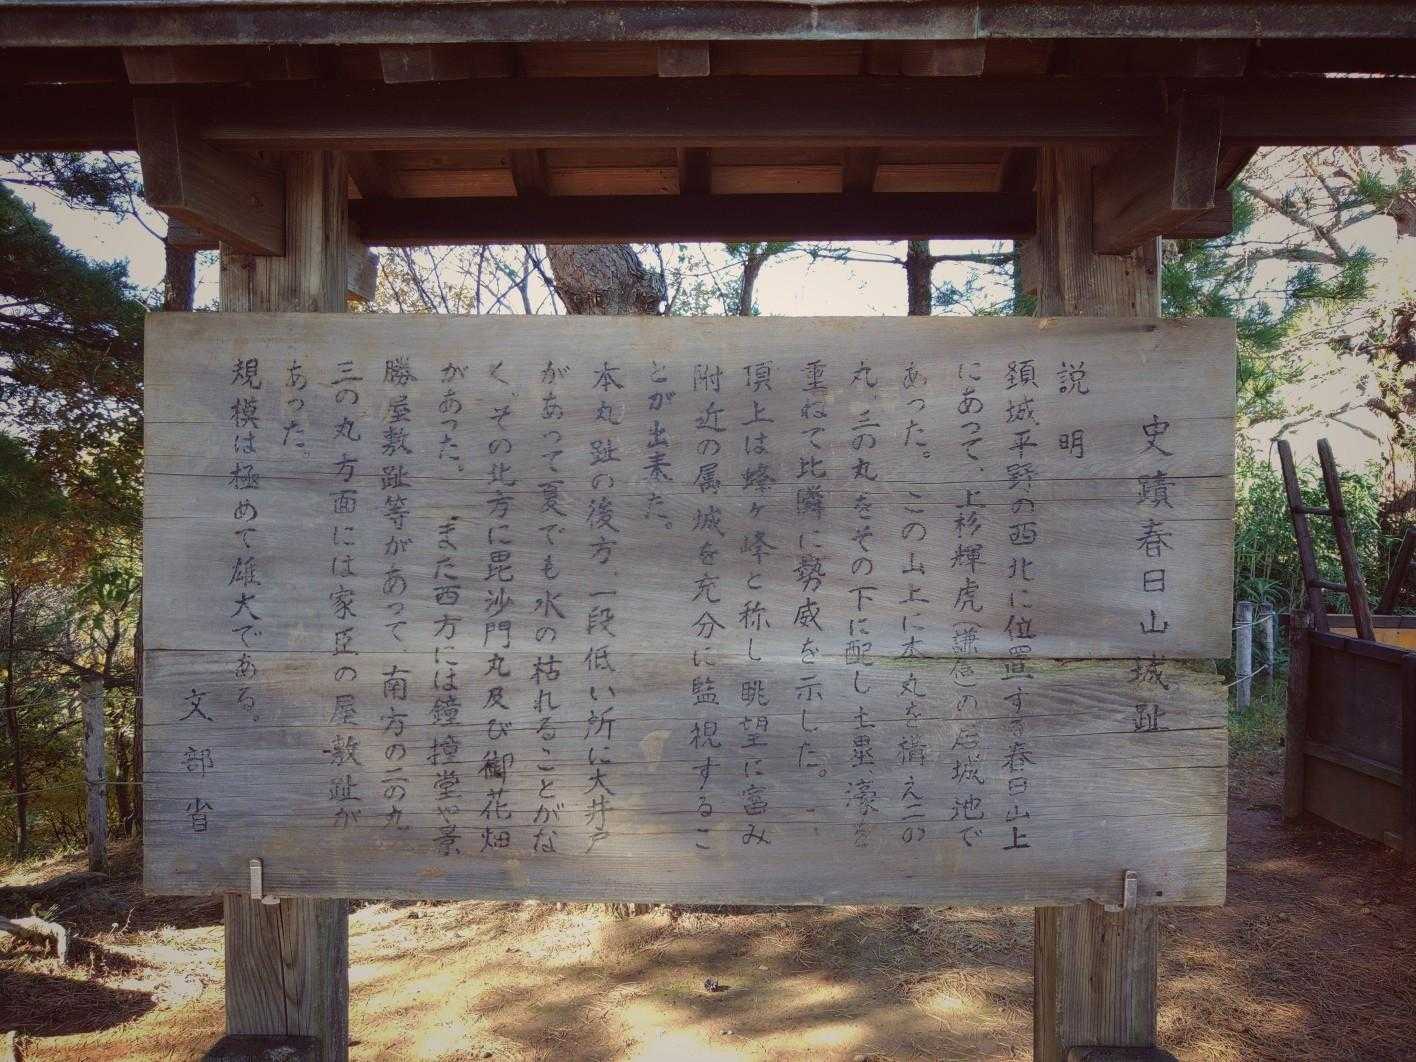 史蹟春日山城趾
説明
頚城平野の西北に位置する春日山上
にあって、上杉輝虎(謙信)の居城池で
あった。この山上に本丸を構え二の
丸、三の丸をその下に配し土塁、濠を
重ねて比隣に勢威を示した。
頂上は蜂ヶ峰と称し眺望に富み
附近の属城を充分に監視するこ
とが出来た。
本丸趾の後方、一段低い所に大井戸
があって夏でも水の枯れることがな
く、その北方に毘沙門丸及び御花畑
があった。また西方には鐘撞堂や景
勝屋敷趾等があって、南方の二の丸
三の丸方面には家臣の屋敷趾が
あった。
規模は極めて雄大である。
文部省